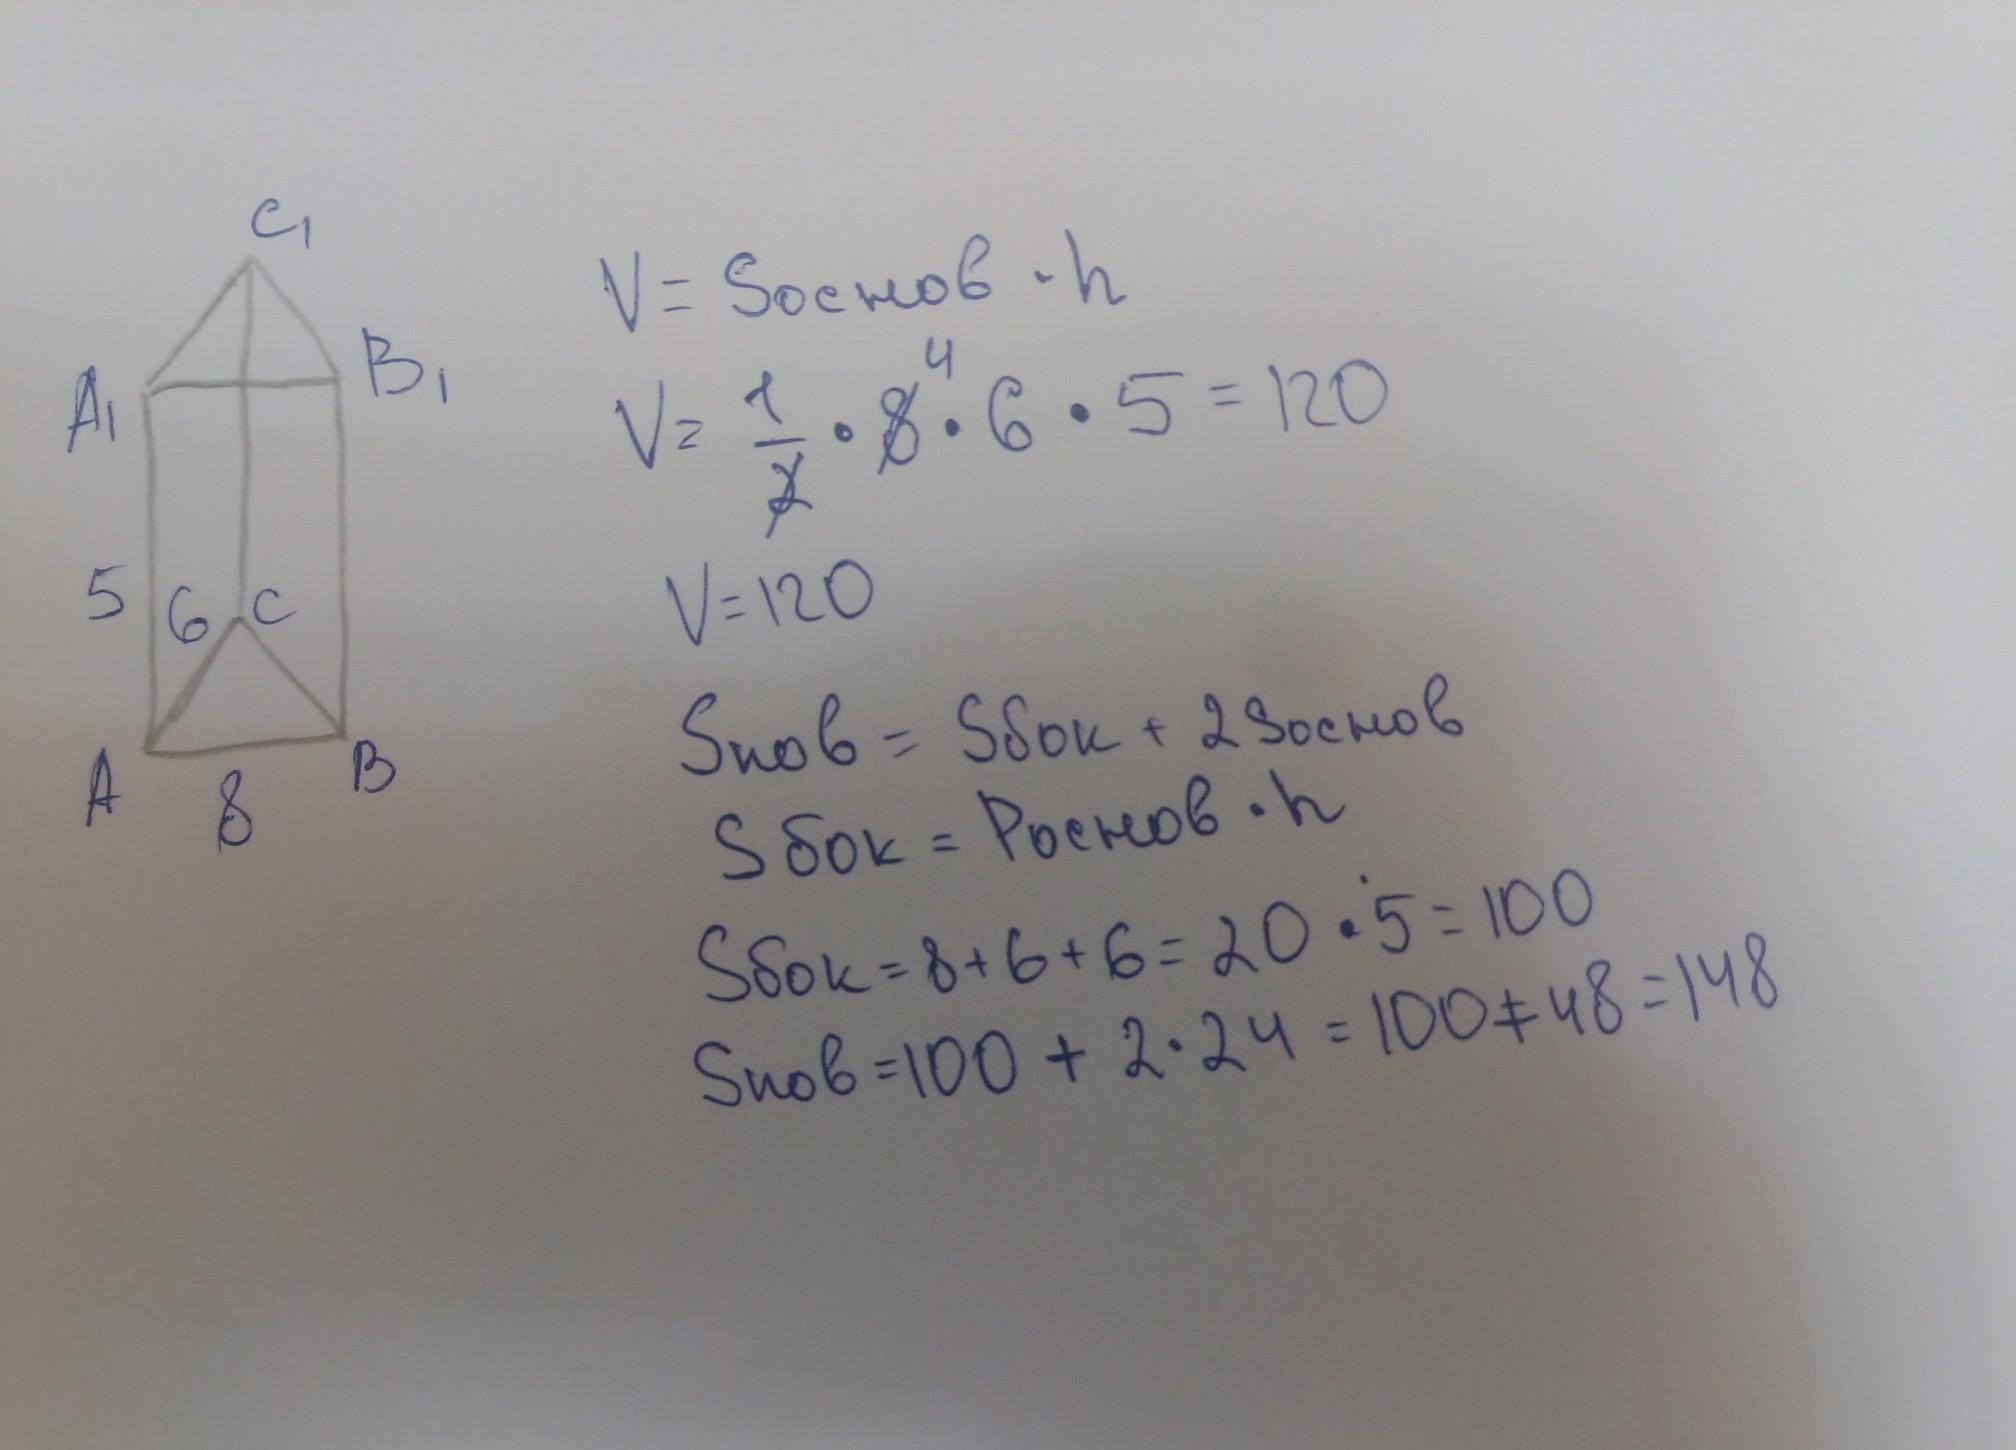 C₁
A₁
B₁
5
6
C
A
8
B
V = Sоснов · h
V = 1/2 · 8 4 · 6 · 5 = 120
V = 120
Sпов = Sбок + 2Sоснов
Sбок = Pоснов · h
Sбок = 8 + 6 + 6 = 20 · 5 = 100
Sпов = 100 + 2 · 24 = 100 + 48 = 148